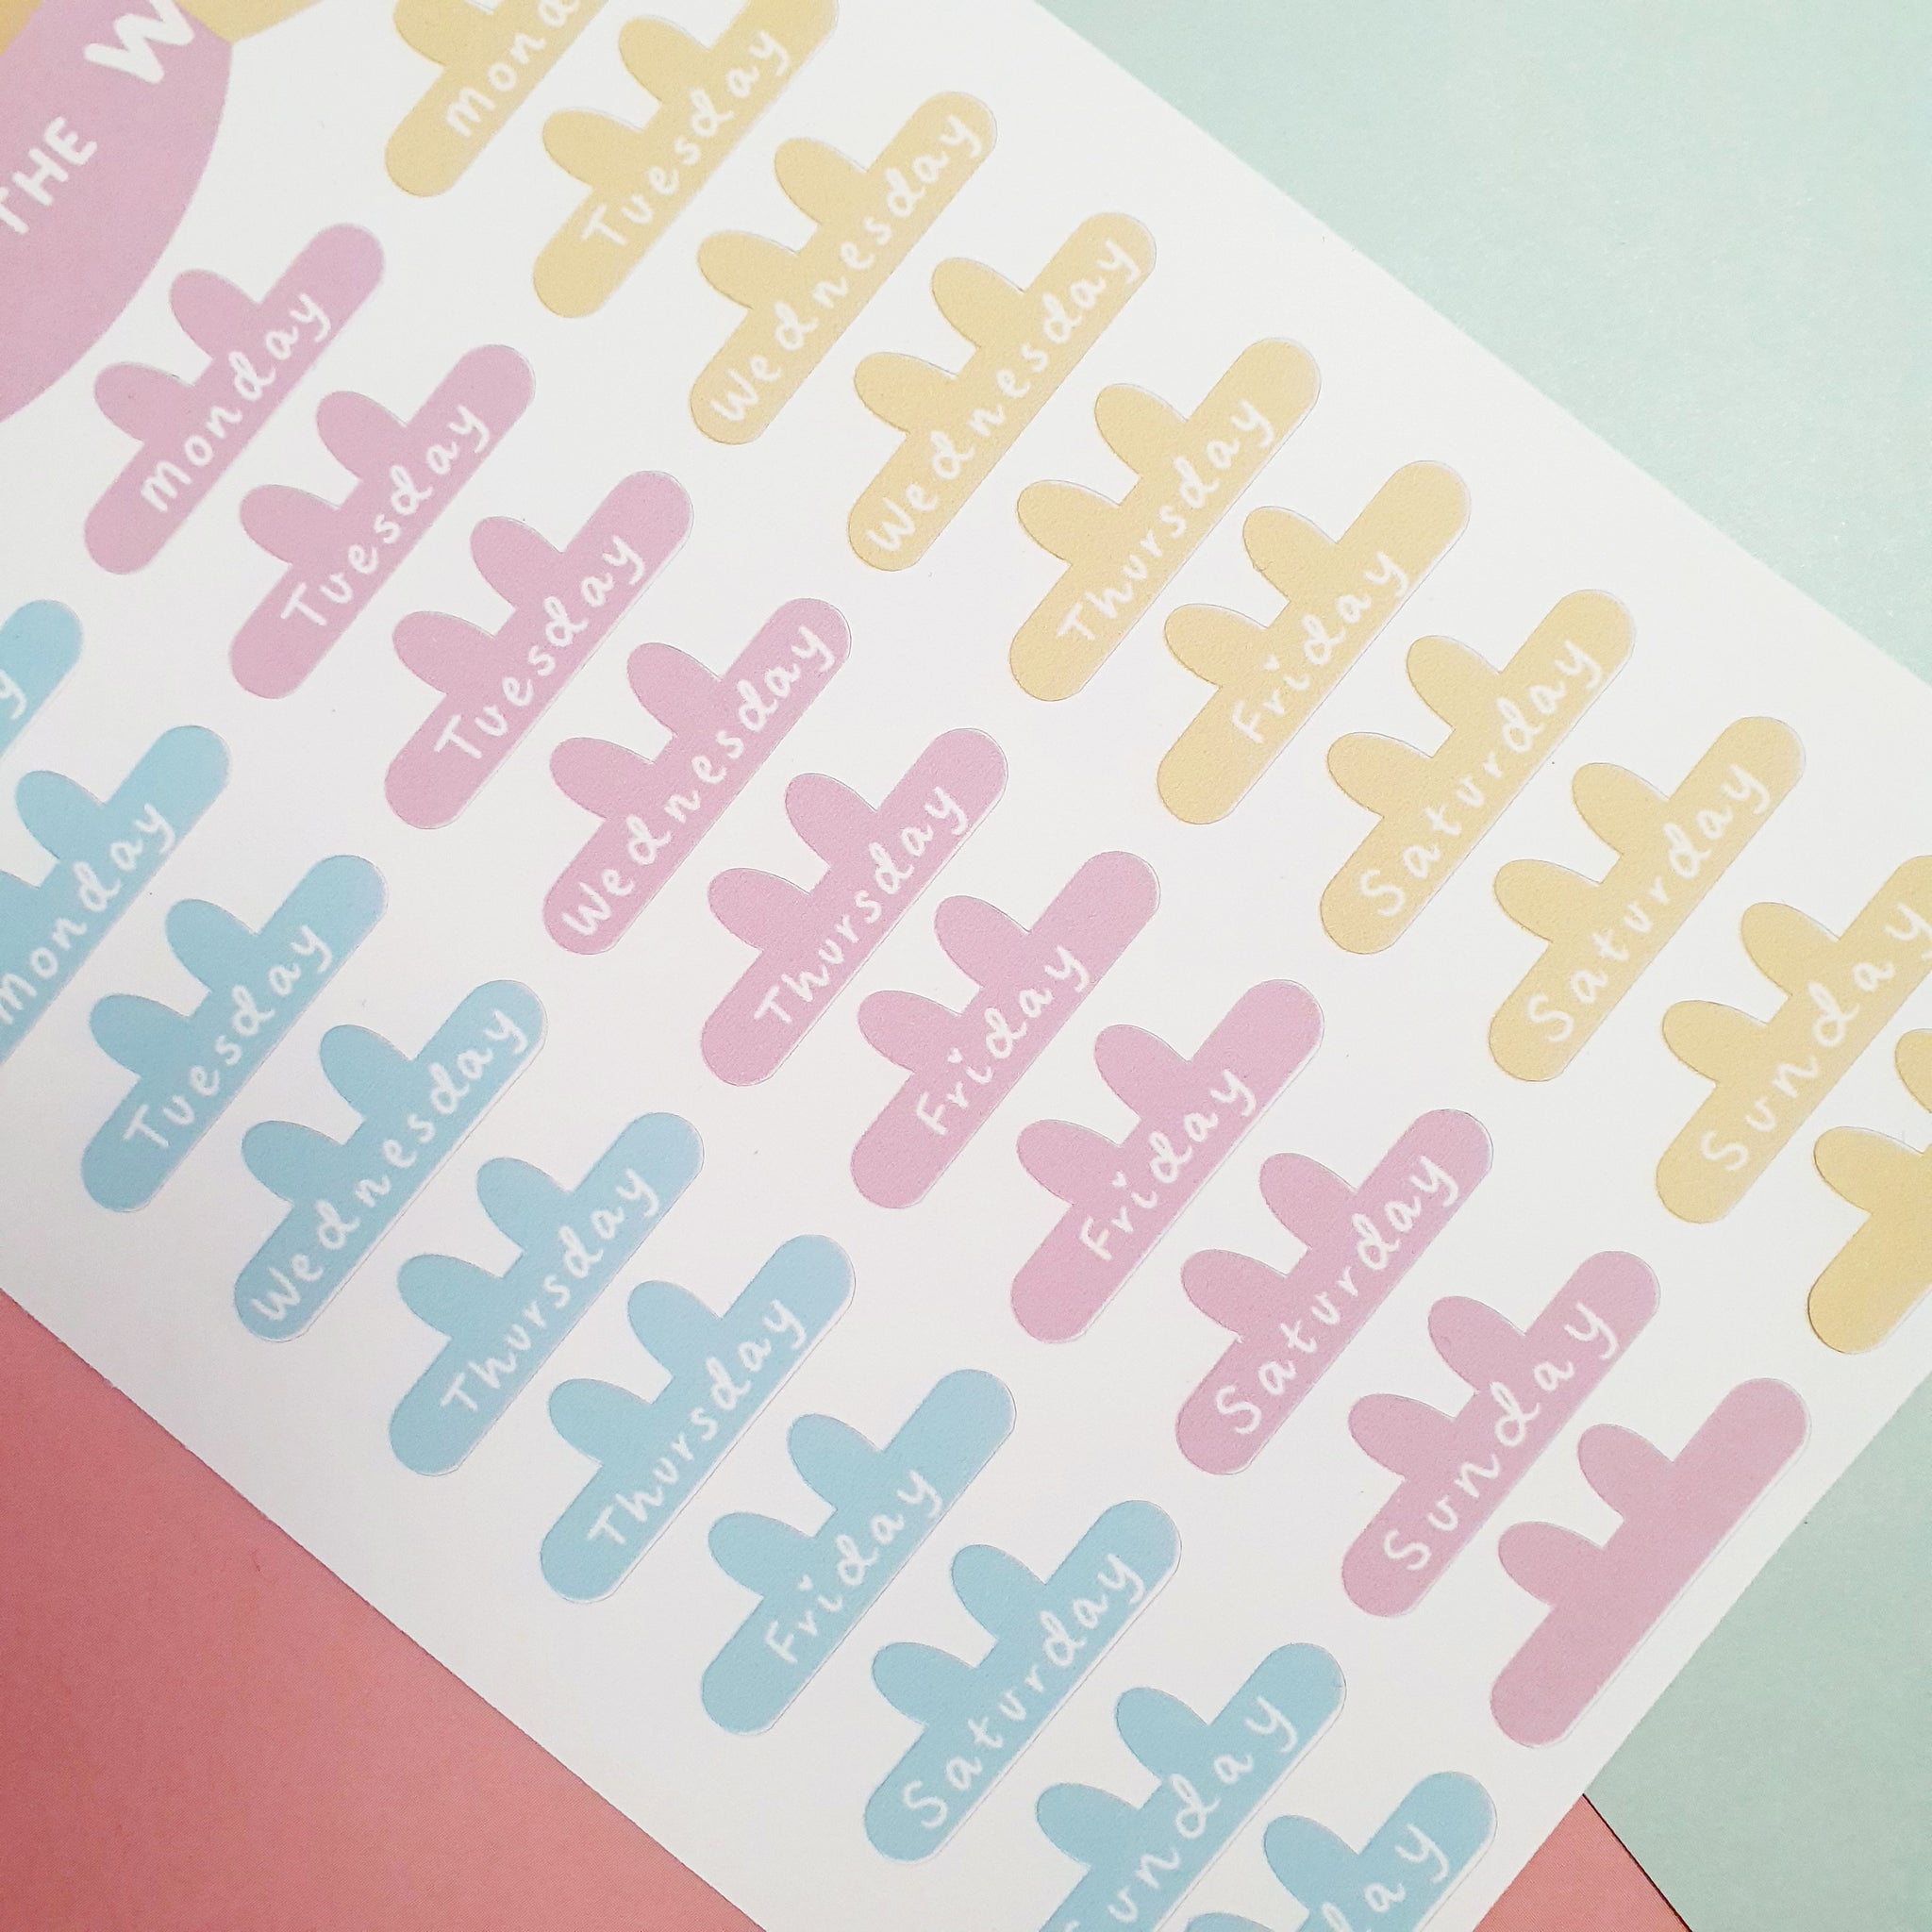 THE W
monday
Tuesday
Wednesday
Thursday
Thursday
Friday
Saturday
Sunday
day
monday
Tuesday
Tuesday
Wednesday
Thursday
Friday
Friday
Saturday
Sunday
Tuesday
Wednesday
Wednesday
Thursday
Friday
Saturday
Saturday
Sunday